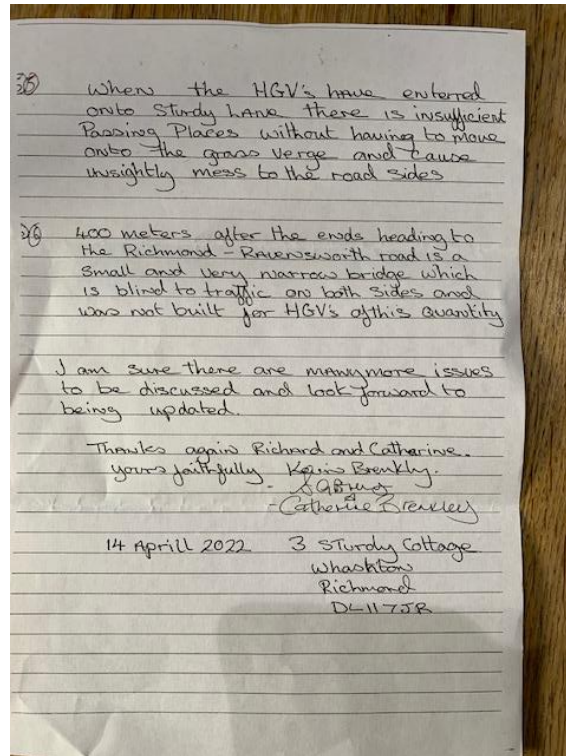 When the HGV's have enterred
onto Sturdy Lane there is insufficient
Passing Places without having to move
onto the grass verge and cause
unsightly mess to the road sides
400 meters after the ends heading to
the Richmond - Ravensworth road is a
small and very narrow bridge which
is blind to traffic on both sides and
was not built for HGV's of this Quantity
I am sure there are many more issues
to be discussed and look forward to
being updated.
Thanks again Richard and Catharine.
yours faithfully Kevin Brenkly.
- Catherine Brenkley
14 Aprill 2022 3 Sturdy Cottage
Whashton
Richmond
DL11 7JR